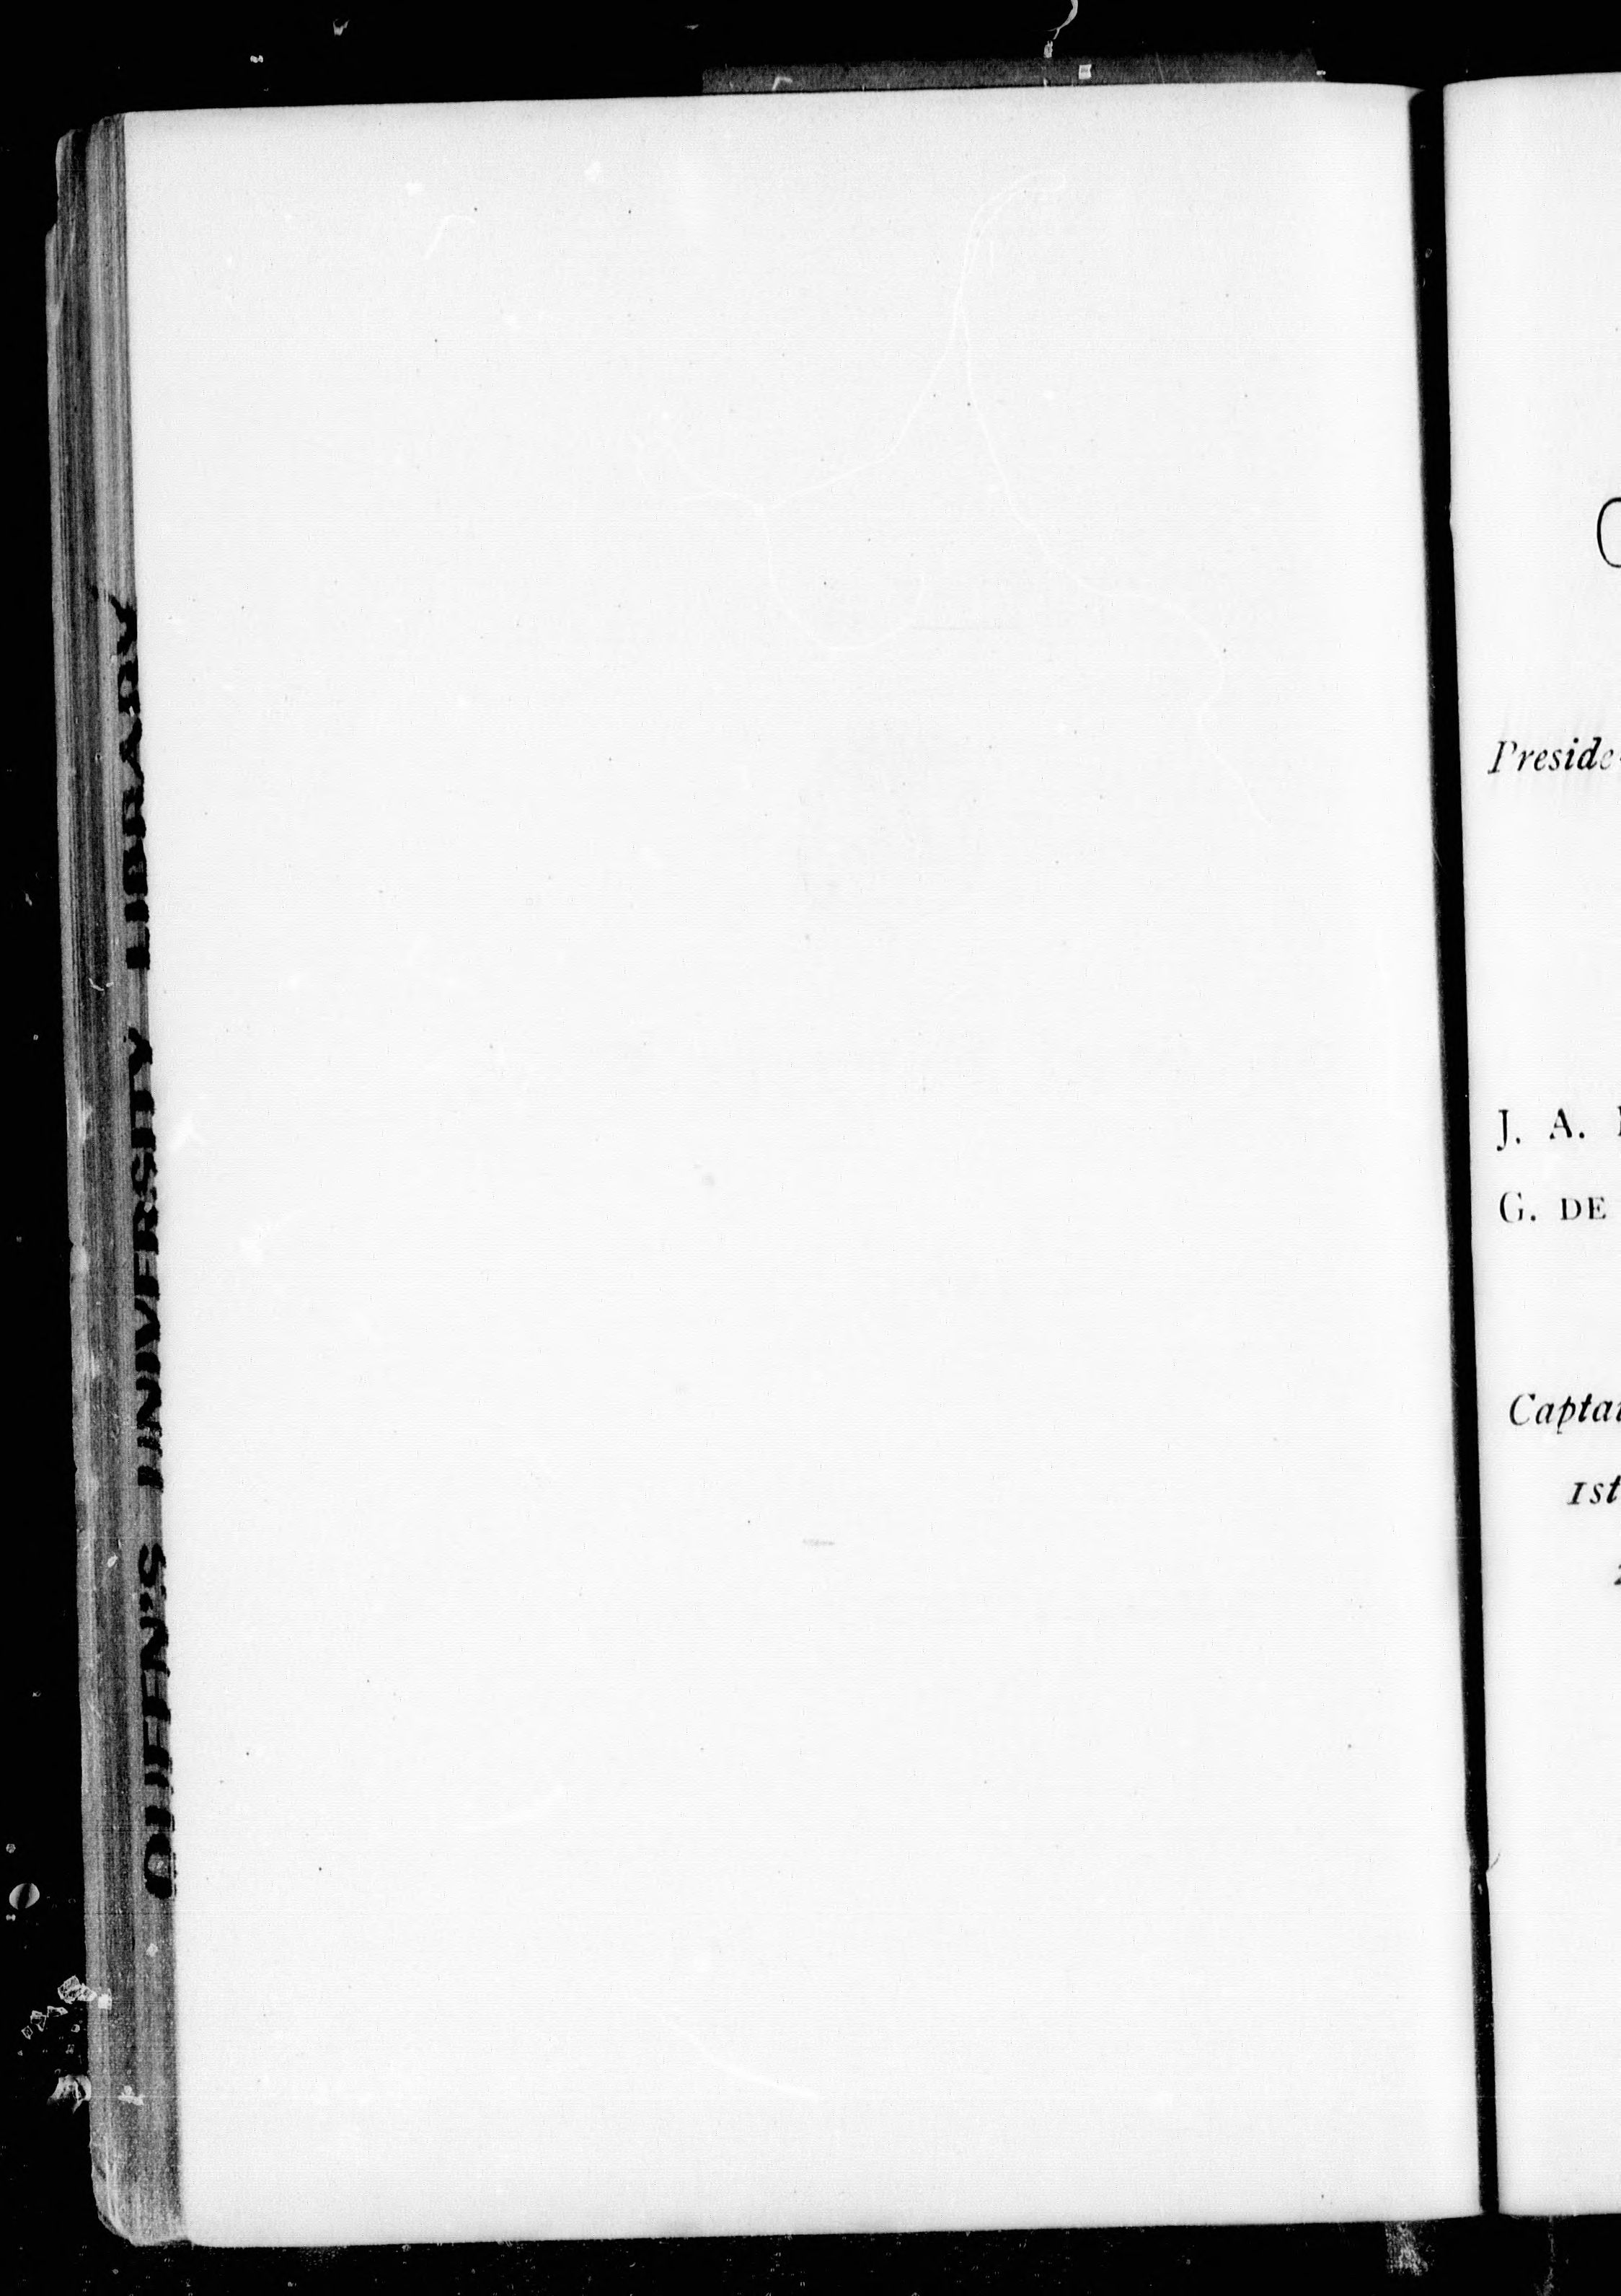 QUEEN'S UNIVERSITY LIBRARY
Preside
J. A.
G. DE
Captai
1st